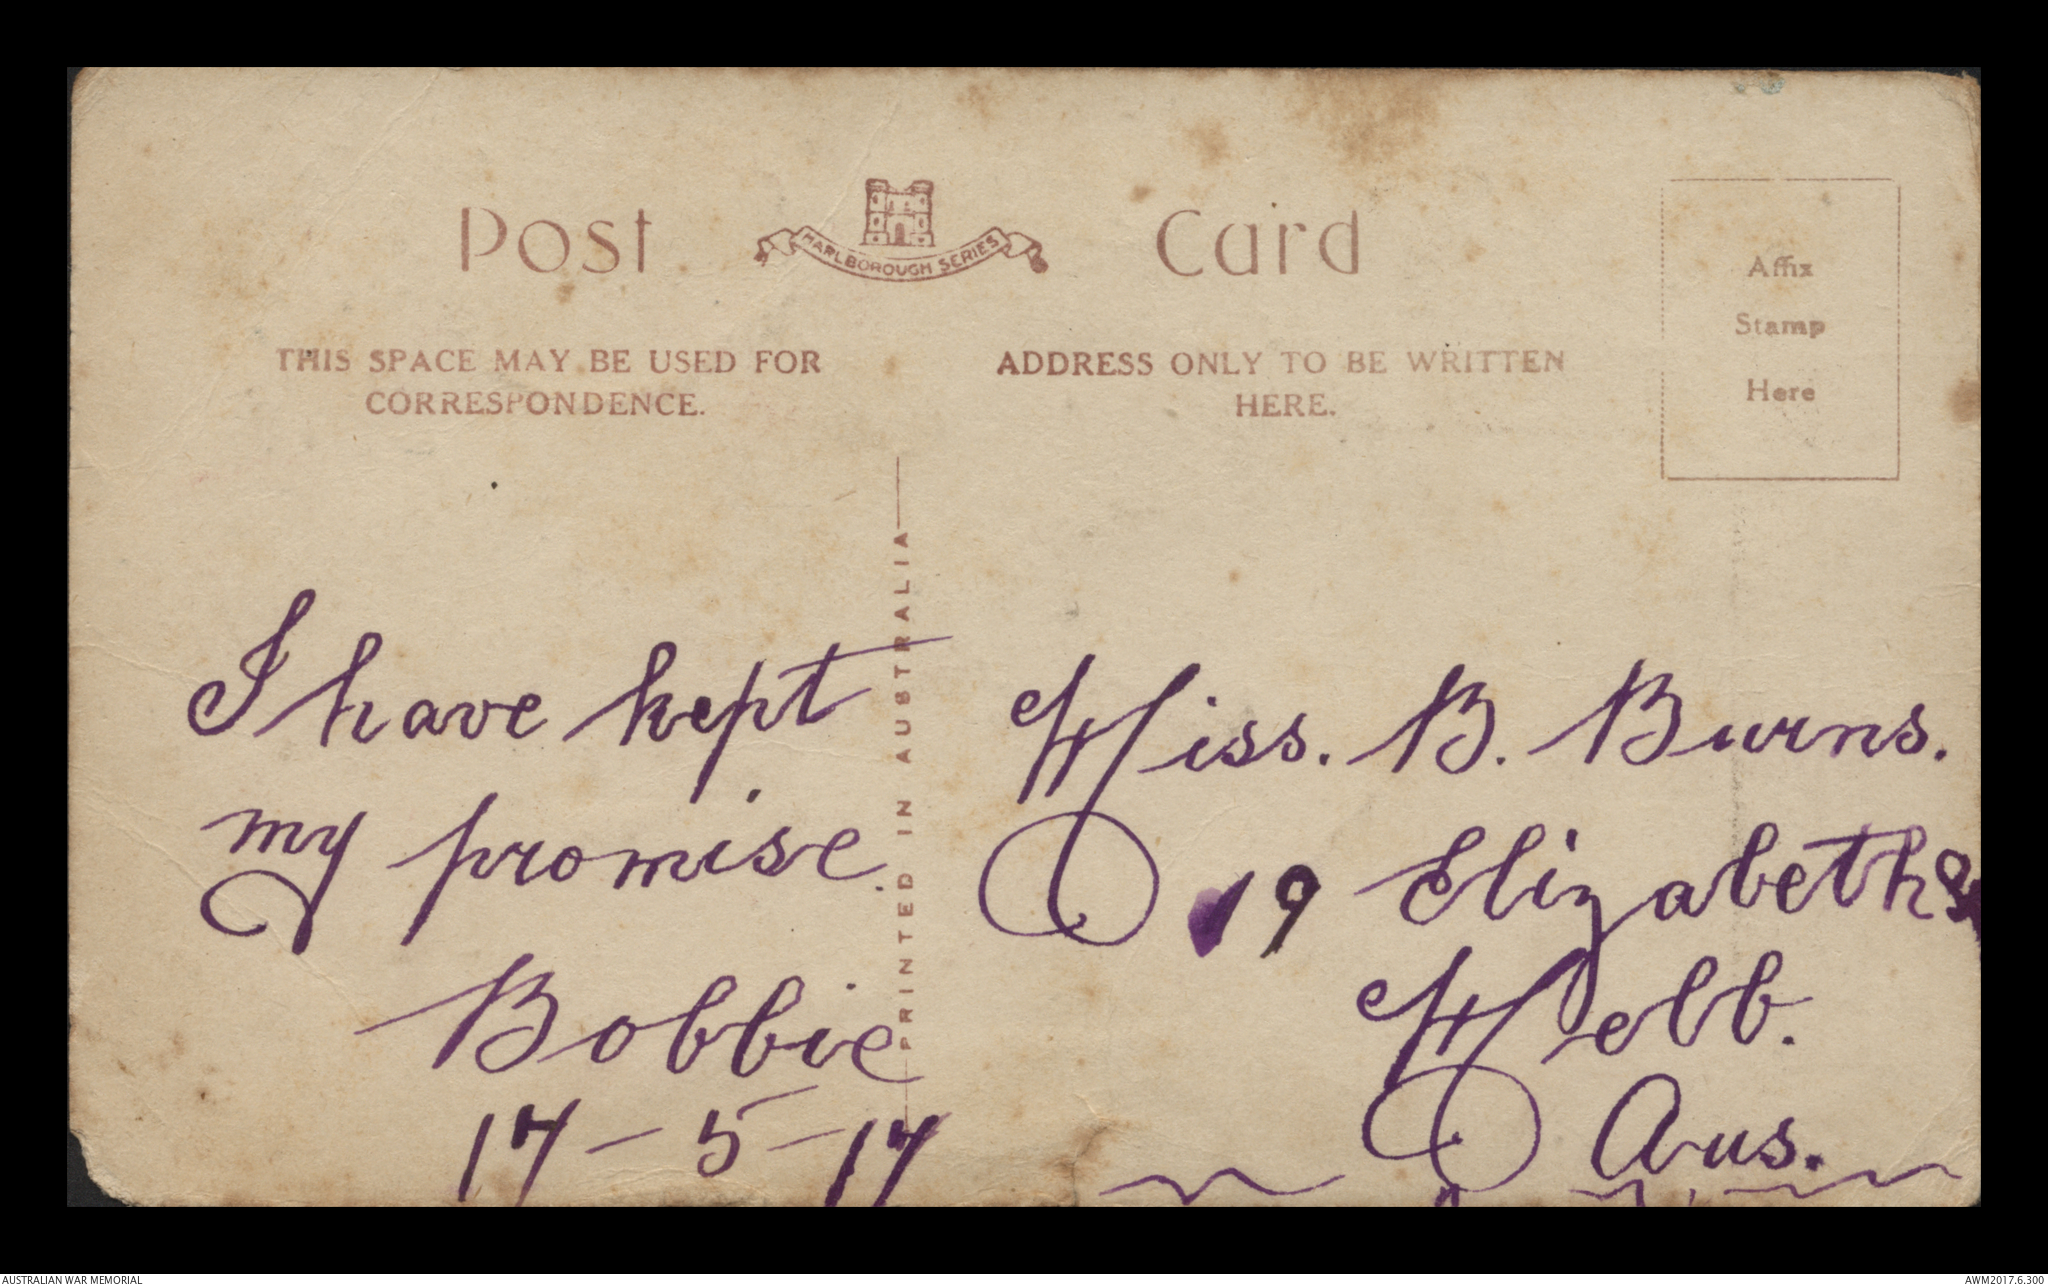 Post Card
MARLBOROUGH SERIES
Affix
Stamp
Here
THIS SPACE MAY BE USED FOR
CORRESPONDENCE.
ADDRESS ONLY TO BE WRITTEN
HERE.
PRINTED IN AUSTRALIA
I have kept
my promise.
Bobbie
17-5-17
Miss. B. Burns.
19 Elizabeth
Melb.
Aus.
AUSTRALIAN WAR MEMORIAL
AWM2017.6.300